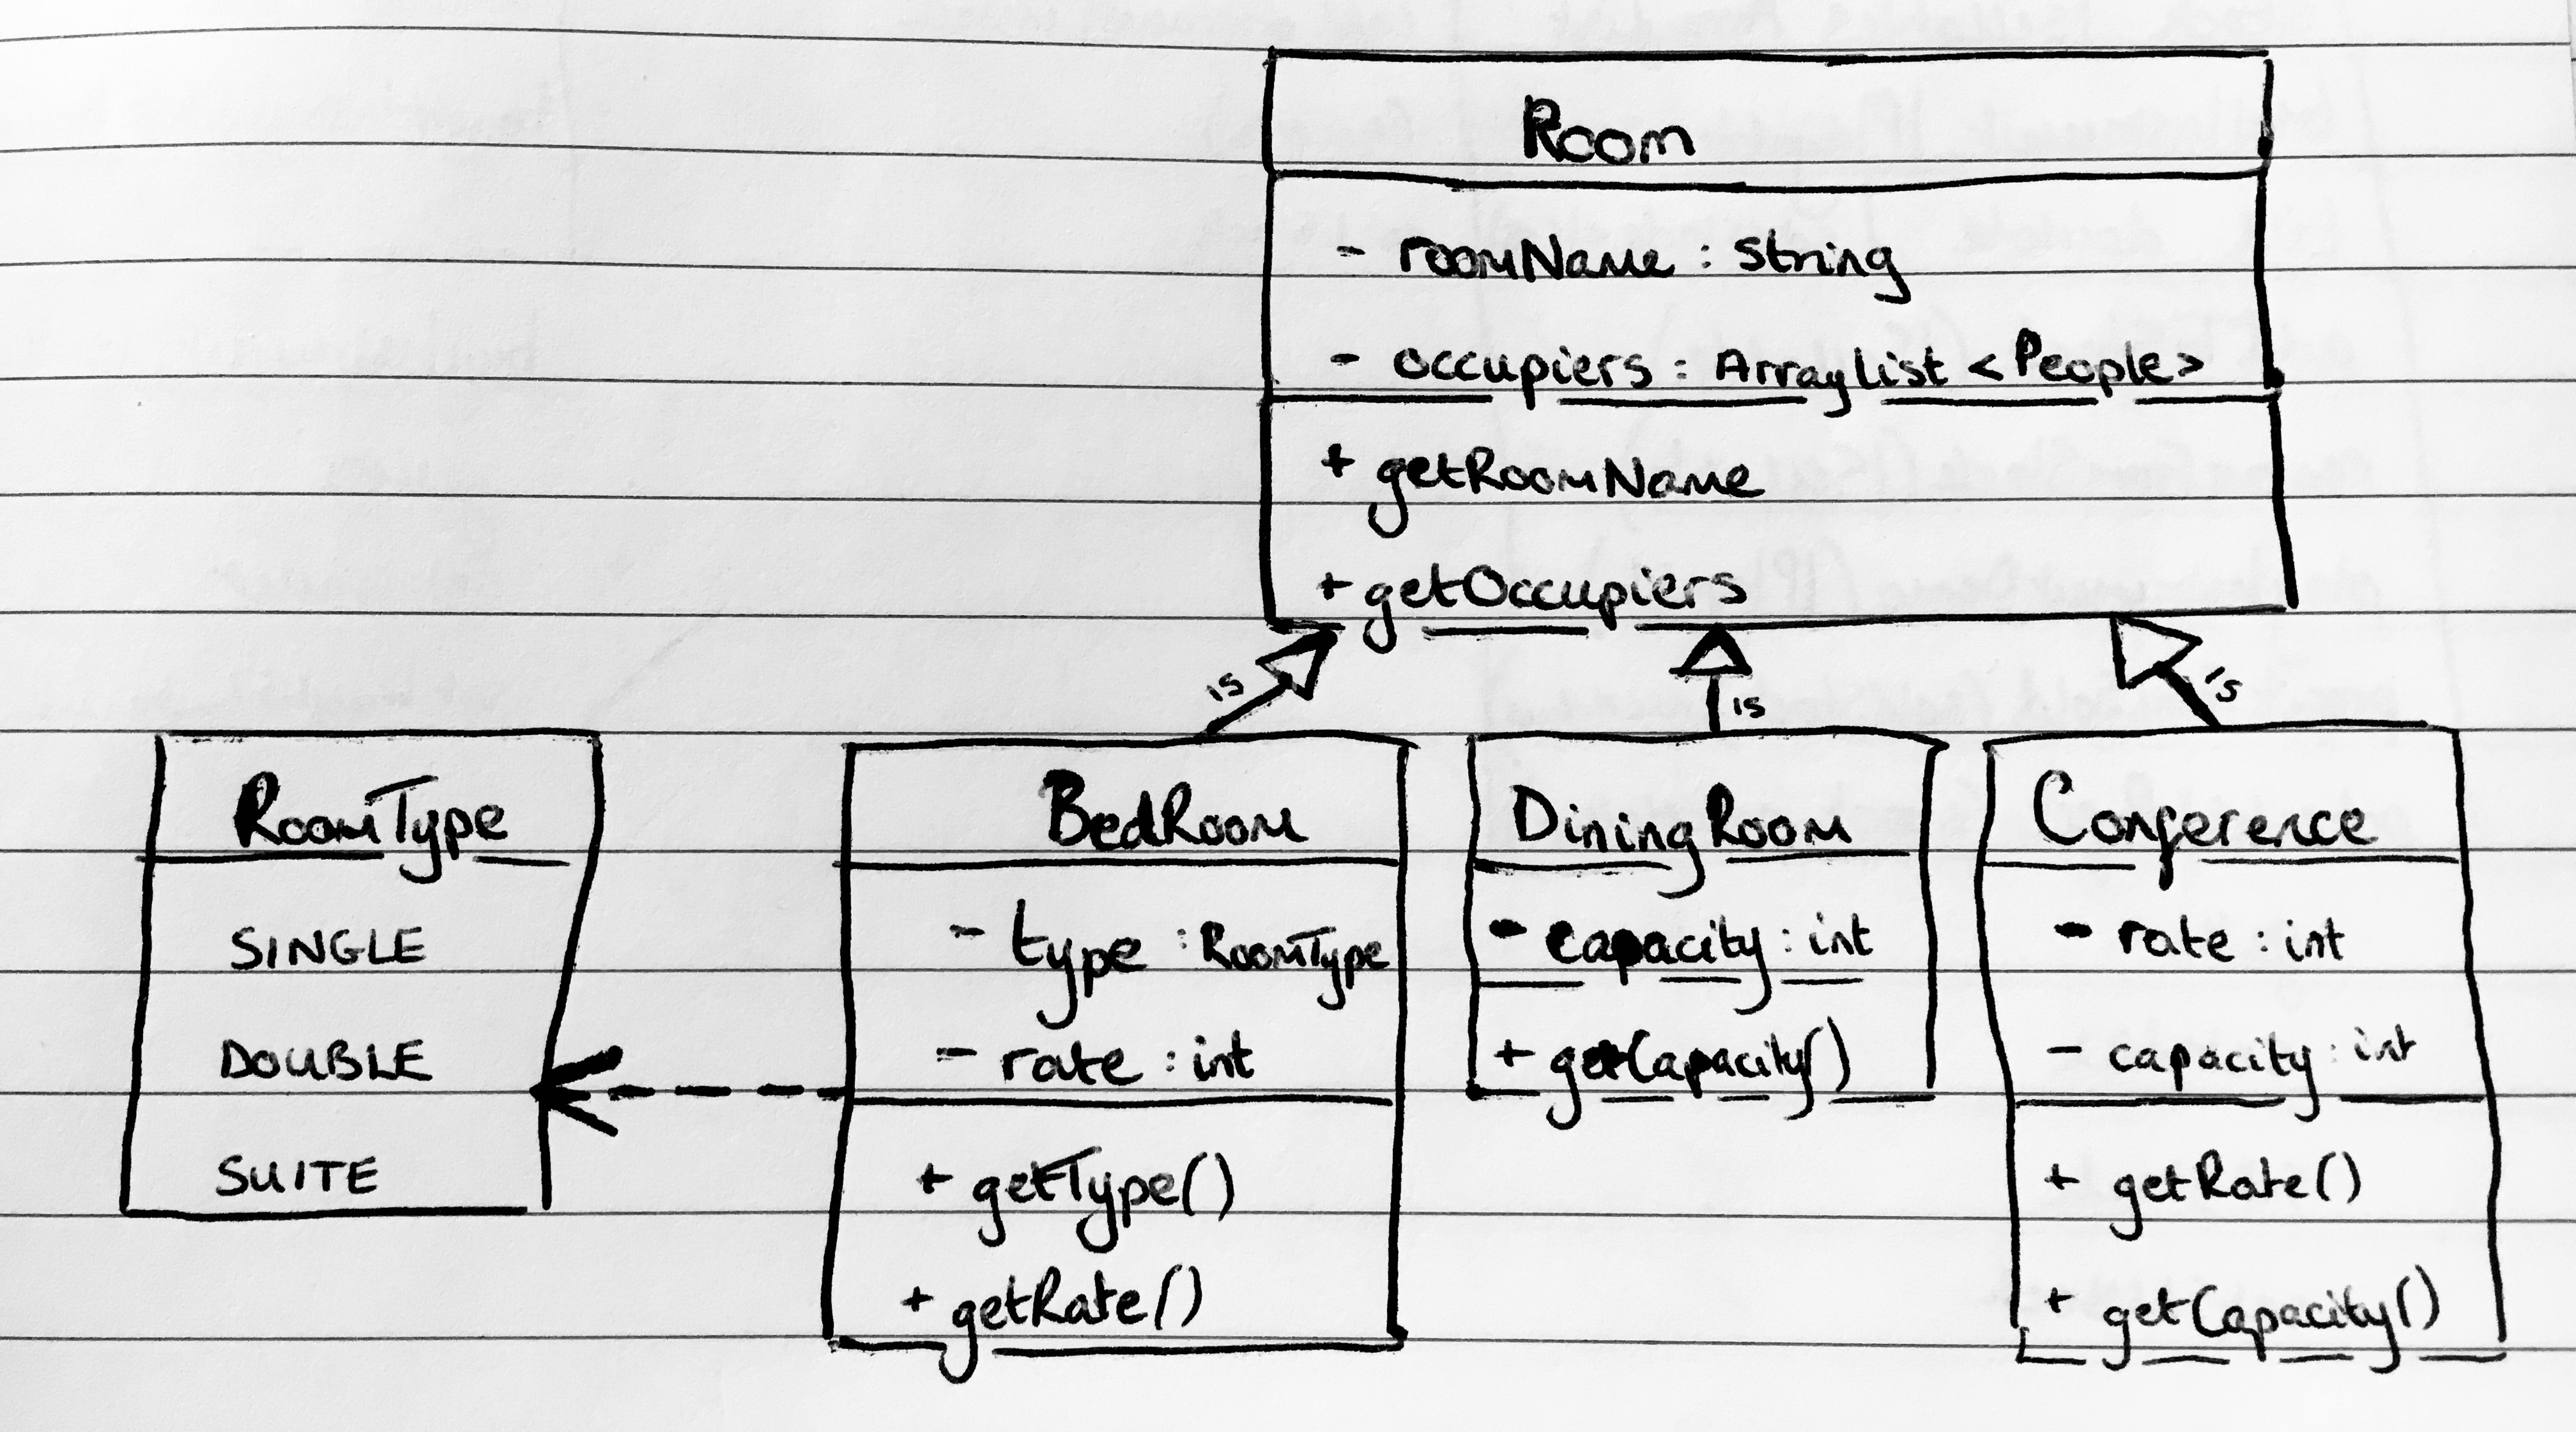 Room
- roomName : String
- occupiers : ArrayList <People>
+ getRoomName
+ getOccupiers
is
is
is
RoomType
SINGLE
DOUBLE
SUITE
BedRoom
- type : RoomType
- rate : int
+ getType()
+ getRate()
DiningRoom
- capacity : int
+ getCapacity()
Conference
- rate : int
- capacity : int
+ getRate()
+ getCapacity()